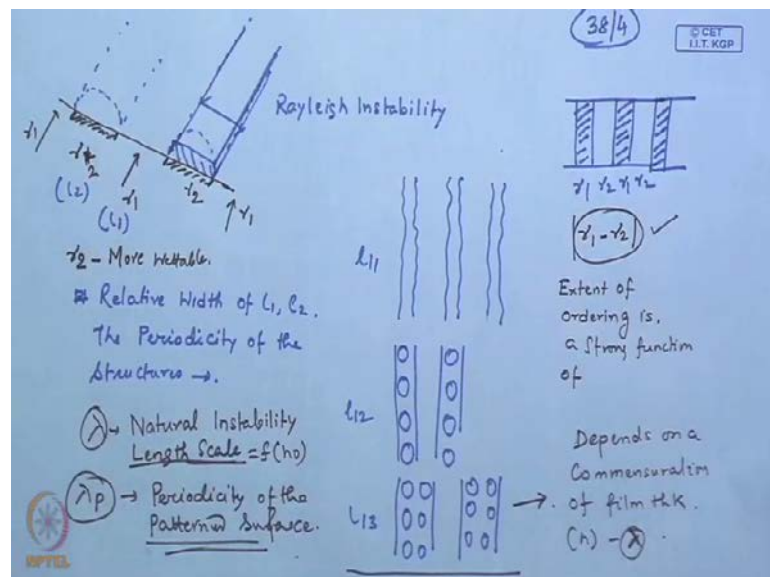 38/4
© CET
I.I.T. KGP
Rayleigh Instability
γ1
γ2
(l2)
γ1
(l1)
γ2
γ1
γ2 - More wettable.
Relative Width of l1, l2.
The Periodicity of the
Structures →.
λ → Natural Instability
Length Scale = f(h0)
λp → Periodicity of the
Patterned Surface.
l11
l12
l13
γ1 γ2 γ1 γ2
|γ1 - γ2| ✓
Extent of
ordering is,
a strong function
of
Depends on a
Commensuration
of film thk.
(h) - λ.
NPTEL